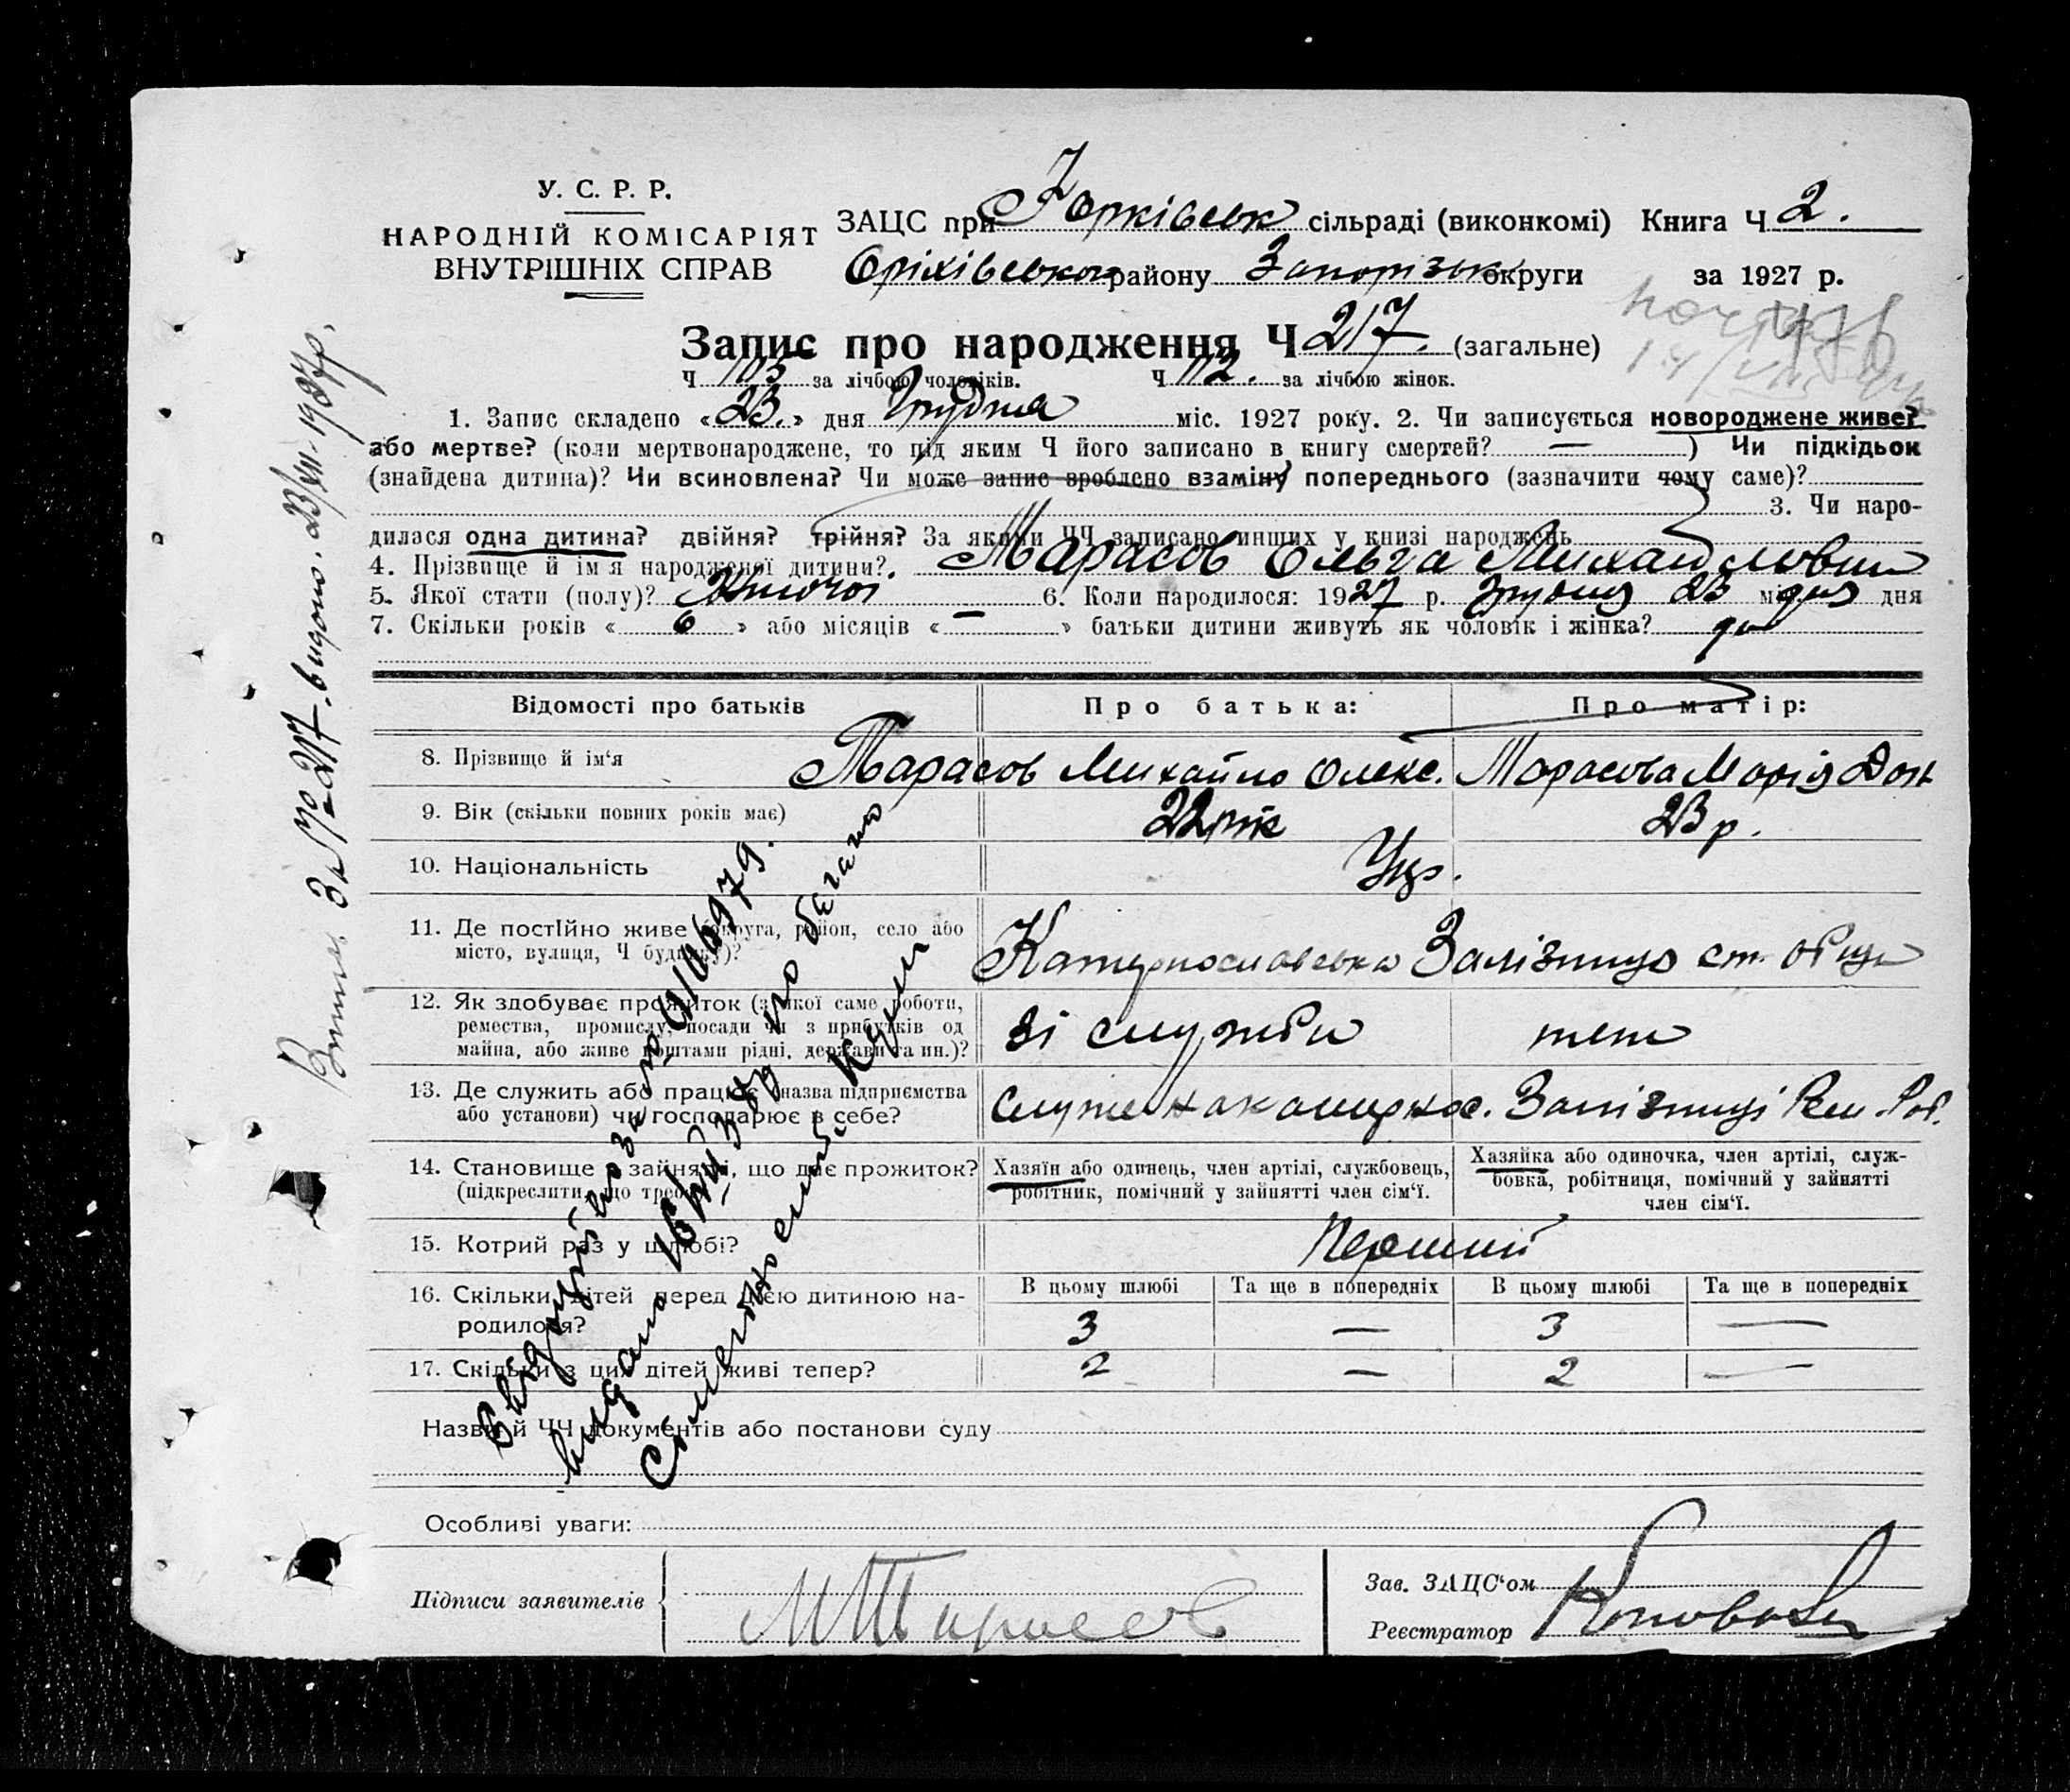 У. С. Р. Р.
НАРОДНІЙ КОМІСАРІЯТ
ВНУТРІШНІХ СПРАВ
ЗАЦС при Юрківськ сільраді (виконкомі) Книга Ч 2.
Оріхівського району Запорізьк округи за 1927 р.
Запис про народження Ч 217. (загальне)
Ч 105 за лічбою чоловіків. Ч 112. за лічбою жінок.
1. Запис складено «23.» дня Грудня міс. 1927 року. 2. Чи записується новороджене живе?
або мертве? (коли мертвонароджене, то під яким Ч його записано в книгу смертей? — ) Чи підкідьок
(знайдена дитина)? Чи всиновлена? Чи може запис зроблено взаміну попереднього (зазначити чому саме)?
3. Чи наро-
дилася одна дитина? двійня? трійня? За якими ЧЧ записано инших у книзі народжень
4. Прізвище й ім'я народженої дитини? Тарасов Ольга Михайловна
5. Якої стати (полу)? Жіночої 6. Коли народилося: 1927 р. Грудня 23 міс. дня дня
7. Скільки років « 6 » або місяців « — » батьки дитини живуть як чоловік і жінка? да
Відомості про батьків Про батька: Про матір:
8. Прізвище й ім'я Тарасов Михайло Олекс. Тарасова Марія
9. Вік (скільки повних років має) 22 рік 23 р.
10. Національність Укр.
11. Де постійно живе (округа, район, село або
місто, вулиця, Ч будинку)? Катериносла­вська Залізниця ст.
12. Як здобуває прожиток (з якої саме роботи,
ремества, промислу, посади чи з прибутків од
майна, або живе коштами рідні, держави та ин.)? зі служби теж
13. Де служить або працює (назва підприємства
або установи) чи господарює в себе? Залізниці
14. Становище в зайнятті, що дає прожиток?
(підкреслити, що треба)
Хазяїн або одинець, член артілі, службовець,
робітник, помічний у зайнятті член сім'ї.
Хазяйка або одиночка, член артілі, служ-
бовка, робітниця, помічний у зайнятті
член сім'ї.
15. Котрий раз у шлюбі? Перший
16. Скільки дітей перед цією дитиною на-
родилося?
В цьому шлюбі Та ще в попередніх В цьому шлюбі Та ще в попередніх
3 — 3 —
17. Скільки з цих дітей живі тепер? 2 — 2 —
Назви й ЧЧ документів або постанови суду
Особливі уваги:
Підписи заявителів МТарасов
Зав. ЗАЦС'ом
Реєстратор
За № 217. видано. 23/XII-1927р.